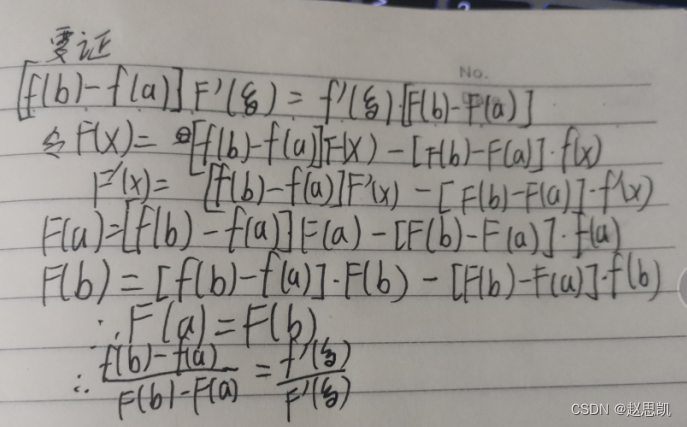 要证
No.
[f(b)-f(a)]F'(ξ)=f'(ξ)·[F(b)-F(a)]
令F(x)=[f(b)-f(a)]F(x)-[F(b)-F(a)]·f(x)
F'(x)=[f(b)-f(a)]F'(x)-[F(b)-F(a)]·f'(x)
F(a)=[f(b)-f(a)]F(a)-[F(b)-F(a)]·f(a)
F(b)=[f(b)-f(a)]·F(b)-[F(b)-F(a)]·f(b)
∵F(a)=F(b)
∴\frac{f(b)-f(a)}{F(b)-F(a)}=\frac{f'(ξ)}{F'(ξ)}
CSDN @赵思凯